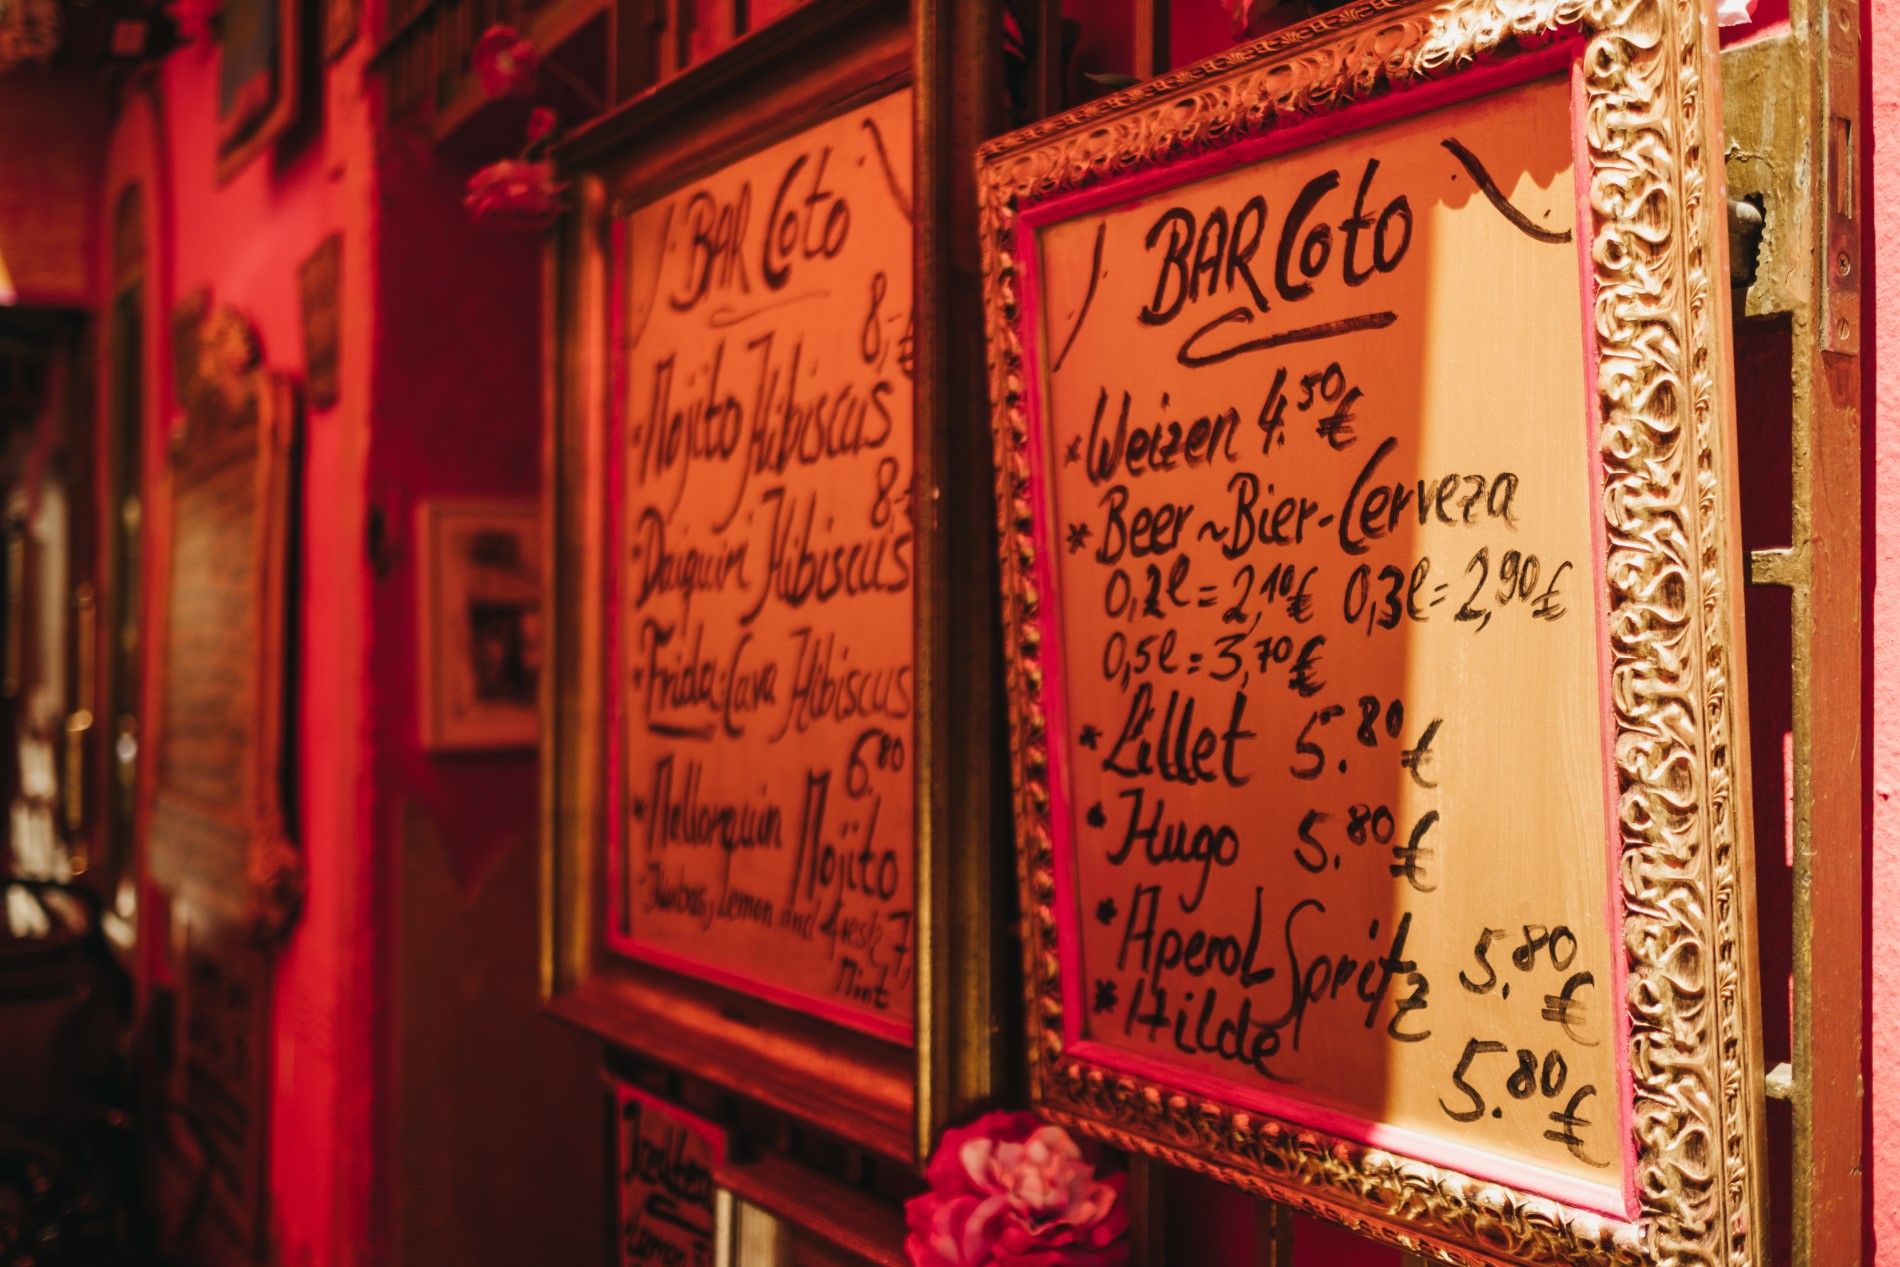 BAR Coto
8,-€
Mojito Hibiscus
8,-
Daiquiri Hibiscus
Frida: Cava Hibiscus
6.80
* Mallorquin Mojito
Hierbas, Lemon and fresh 7,
Mint
BAR Coto
* Weizen 4.50€
* Beer ~ Bier - Cerveza
0,2l = 2,10€ 0,3l = 2,90€
0,5l = 3,70€
* Lillet 5.80€
* Hugo 5.80€
* Aperol Spritz 5.80€
* Hilde 5.80€